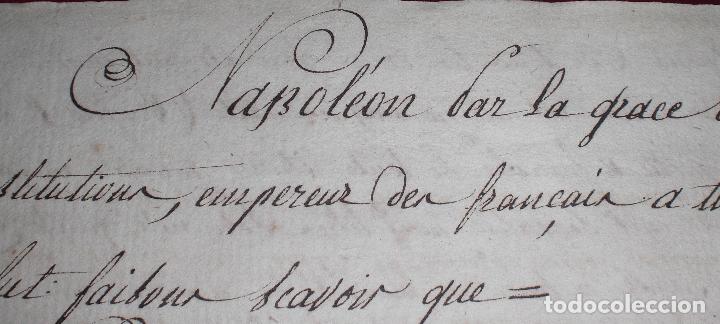 Napoléon par la grace
stitutions, empereur des français a
lut: faisons scavoir que =
todocoleccion